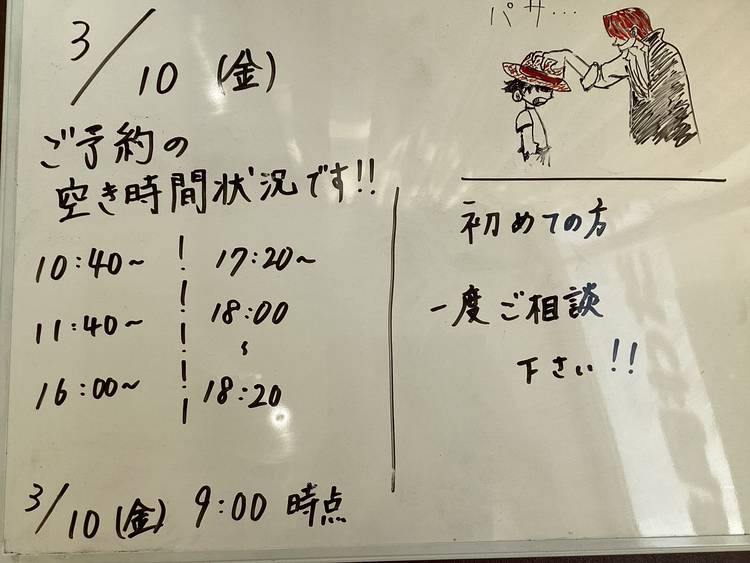 3/10(金)
パサ…
ご予約の
空き時間状況です!!
10:40~
11:40~
16:00~
17:20~
18:00
~
18:20
3/10(金) 9:00 時点
初めての方
一度ご相談
下さい!!